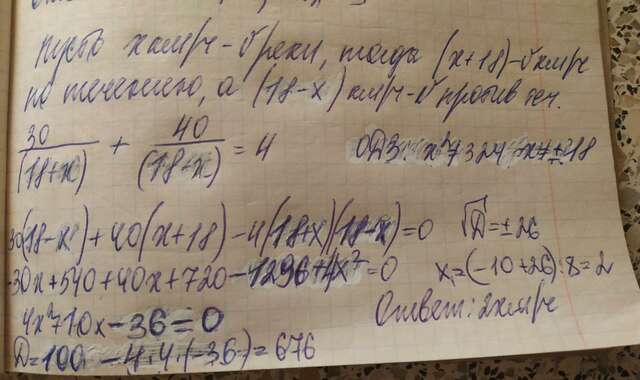 Пусть x км/ч - V реки, тогда (x+18) - V км/ч
по течению, а (18-x) км/ч - V против теч.
30/(18+x) + 40/(18+x) = 4 ОДЗ: x²≠324 x≠±18
30(18-x) + 40(x+18) - 4(18+x)(18-x) = 0 √D = ±26
-30x + 540 + 40x + 720 - 1296 + 4x² = 0 x₁ = (-10+26):8 = 2
4x² + 10x - 36 = 0 Ответ: 2 км/ч
D = 100 - 4·4·(-36) = 676